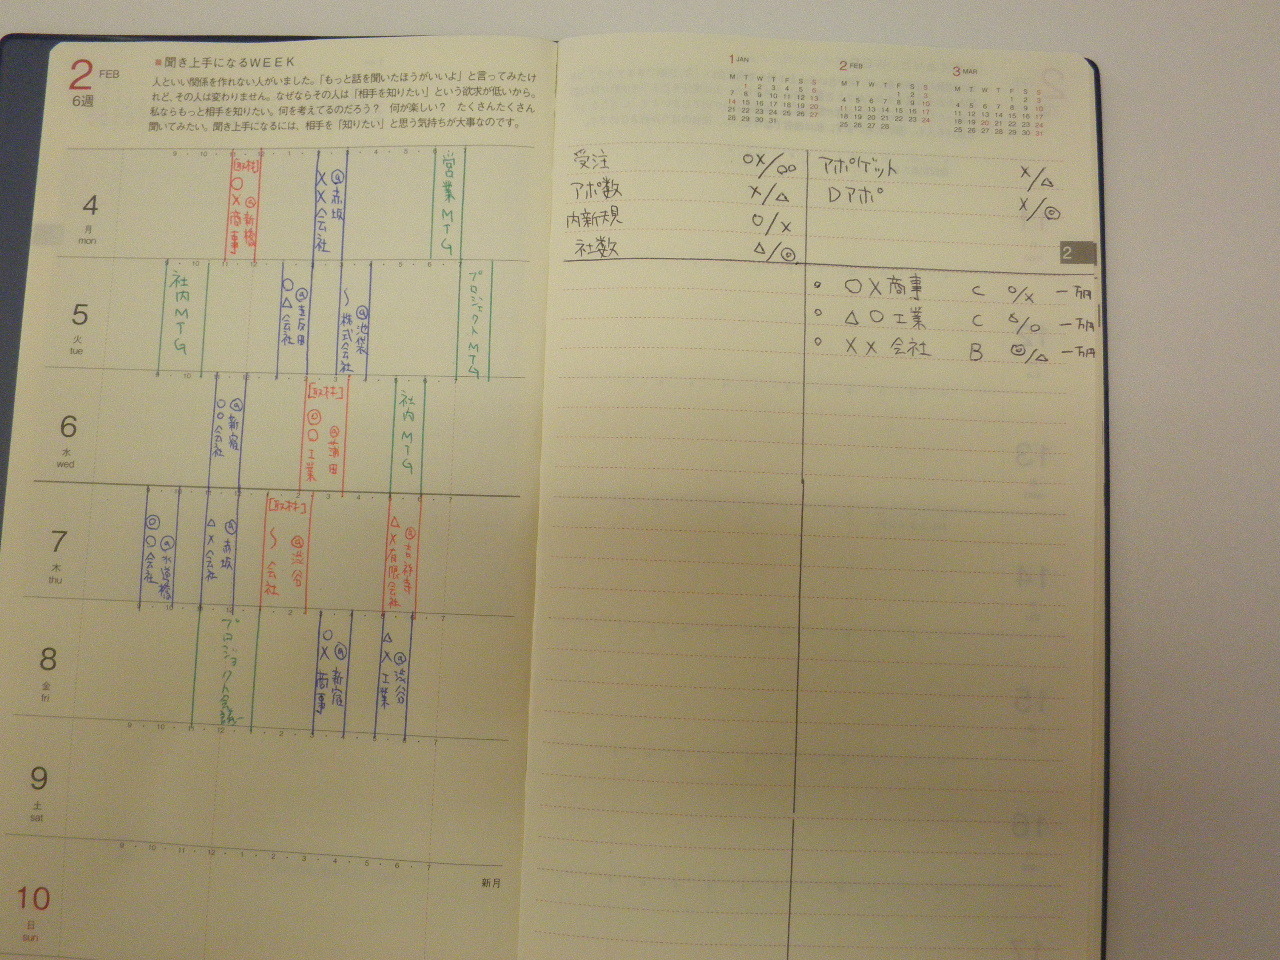 2 FEB
6週
■聞き上手になるWEEK
人といい関係を作れない人がいました。「もっと話を聞いたほうがいいよ」と言ってみたけ
れど、その人は変わりません。なぜならその人は「相手を知りたい」という欲求が低いから。
私ならもっと相手を知りたい。何を考えてるのだろう？ 何が楽しい？ たくさんたくさん
聞いてみたい。聞き上手になるには、相手を「知りたい」と思う気持ちが大事なのです。
4
月
mon
[取材]
○×商事
@新橋
××会社
@赤坂
営業MTG
5
火
tue
社内MTG
○△会社
@五反田
〜株式会社
@池袋
プロジェクトMTG
6
水
wed
○○会社
@新宿
[取材]
◎○工業
@蒲田
社内MTG
7
木
thu
◎○会社
@水道橋
△×会社
@赤坂
[取材]
〜会社
@渋谷
△×有限会社
@吉祥寺
8
金
fri
プロジェクト会議
○×商事
@新宿
△×工業
@渋谷
9
土
sat
新月
10
日
sun
1 JAN
M T W T F S S
1 2 3 4 5 6
7 8 9 10 11 12 13
14 15 16 17 18 19 20
21 22 23 24 25 26 27
28 29 30 31
2 FEB
M T W T F S S
1 2 3
4 5 6 7 8 9 10
11 12 13 14 15 16 17
18 19 20 21 22 23 24
25 26 27 28
3 MAR
M T W T F S S
1 2 3
4 5 6 7 8 9 10
11 12 13 14 15 16 17
18 19 20 21 22 23 24
25 26 27 28 29 30 31
受注 ○×/○○
アポ数 ×/△
内新規 ○/×
社数 △/◎
アポゲット ×/△
Dアポ ×/◎
2
○ ○×商事 C ○/× 一万円
○ △○工業 C △/○ 一万円
○ ××会社 B ◎/△ 一万円